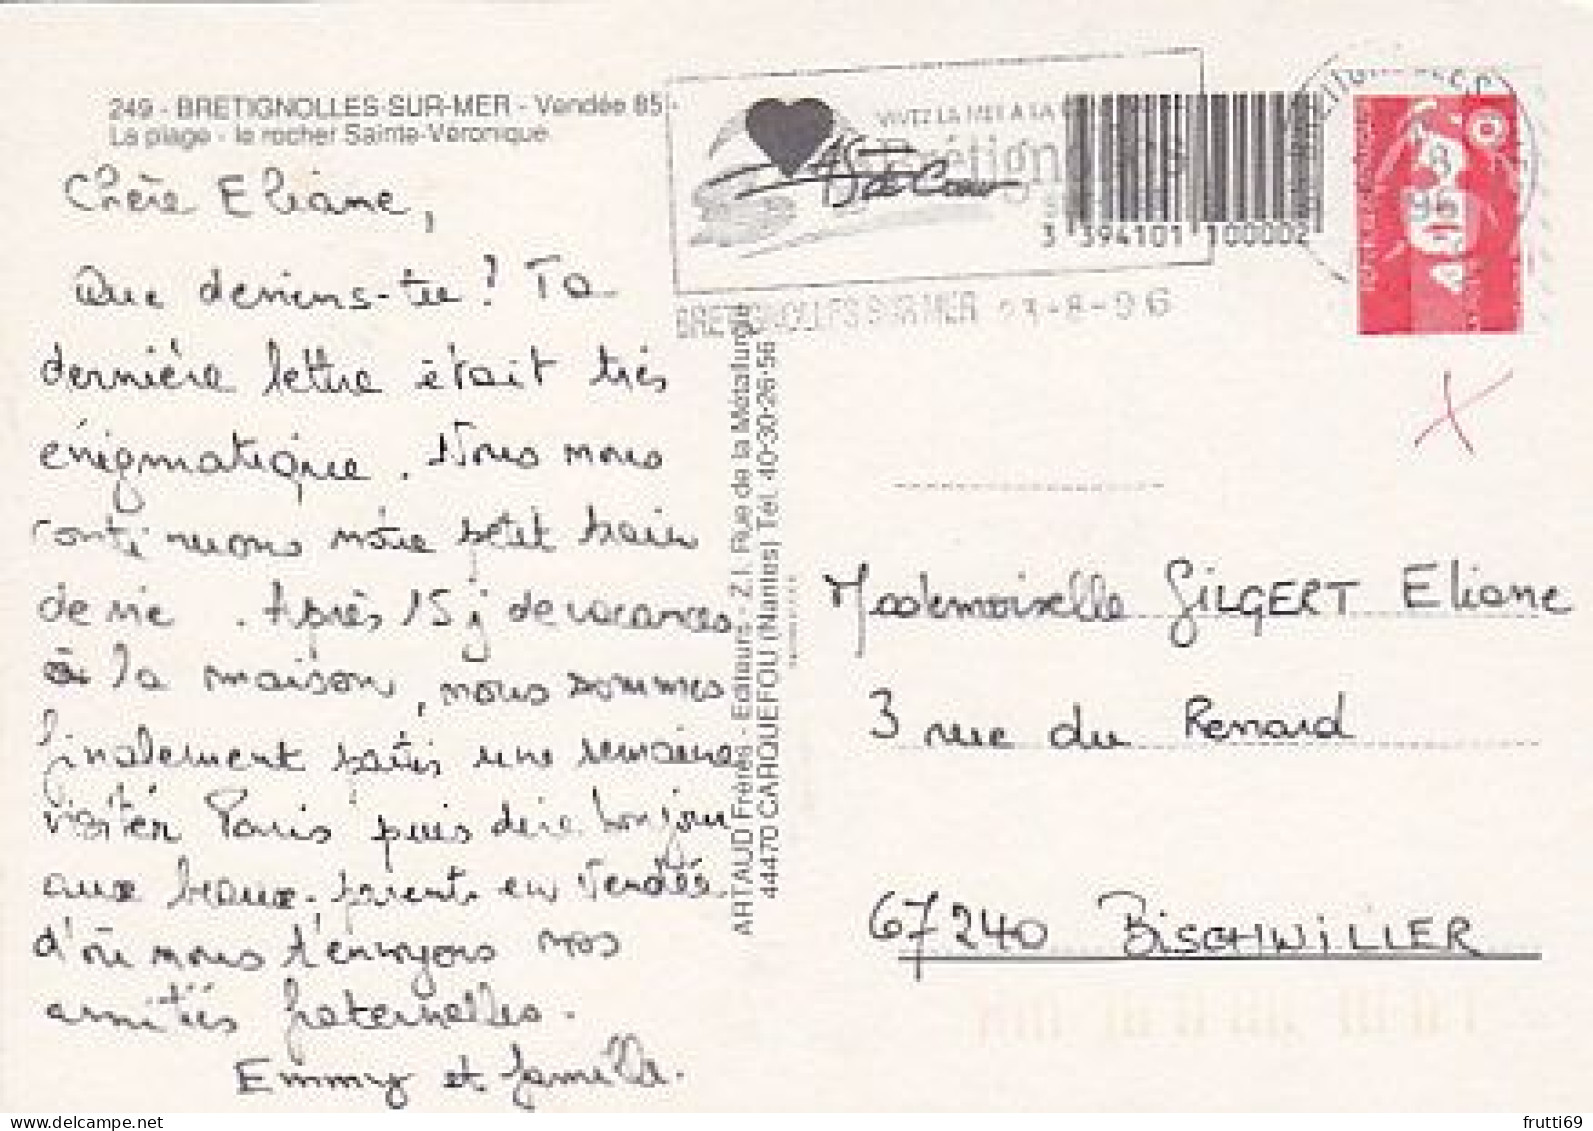 249 - BRETIGNOLLES-SUR-MER - Vendée 85 -
La plage - le rocher Sainte-Véronique
Chère Eliane,
Que deviens-tu ? Ta
dernière lettre était très
énigmatique. Nous nous
continuons nôtre petit train
de vie. Après 15 j de vacances
à la maison, nous sommes
finalement partis une semaine
visiter Paris puis dire bonjour
aux beaux-parents en Vendée
d'où nous t'envoyons nos
amitiés fraternelles.
Emmy et famille.
ARTAUD Frères - Editeurs - Z.I. Rue de la Métallurgie
44470 CARQUEFOU (Nantes) Tél. 40-30-26-56
VIVEZ LA MER A LA
Brétign
3 394101 100002
BRETIGNOLLES SUR MER 03-8-96
Mademoiselle GILGERT Eliane
3 rue du Renard
67240 BISCHWILLER
frutti69